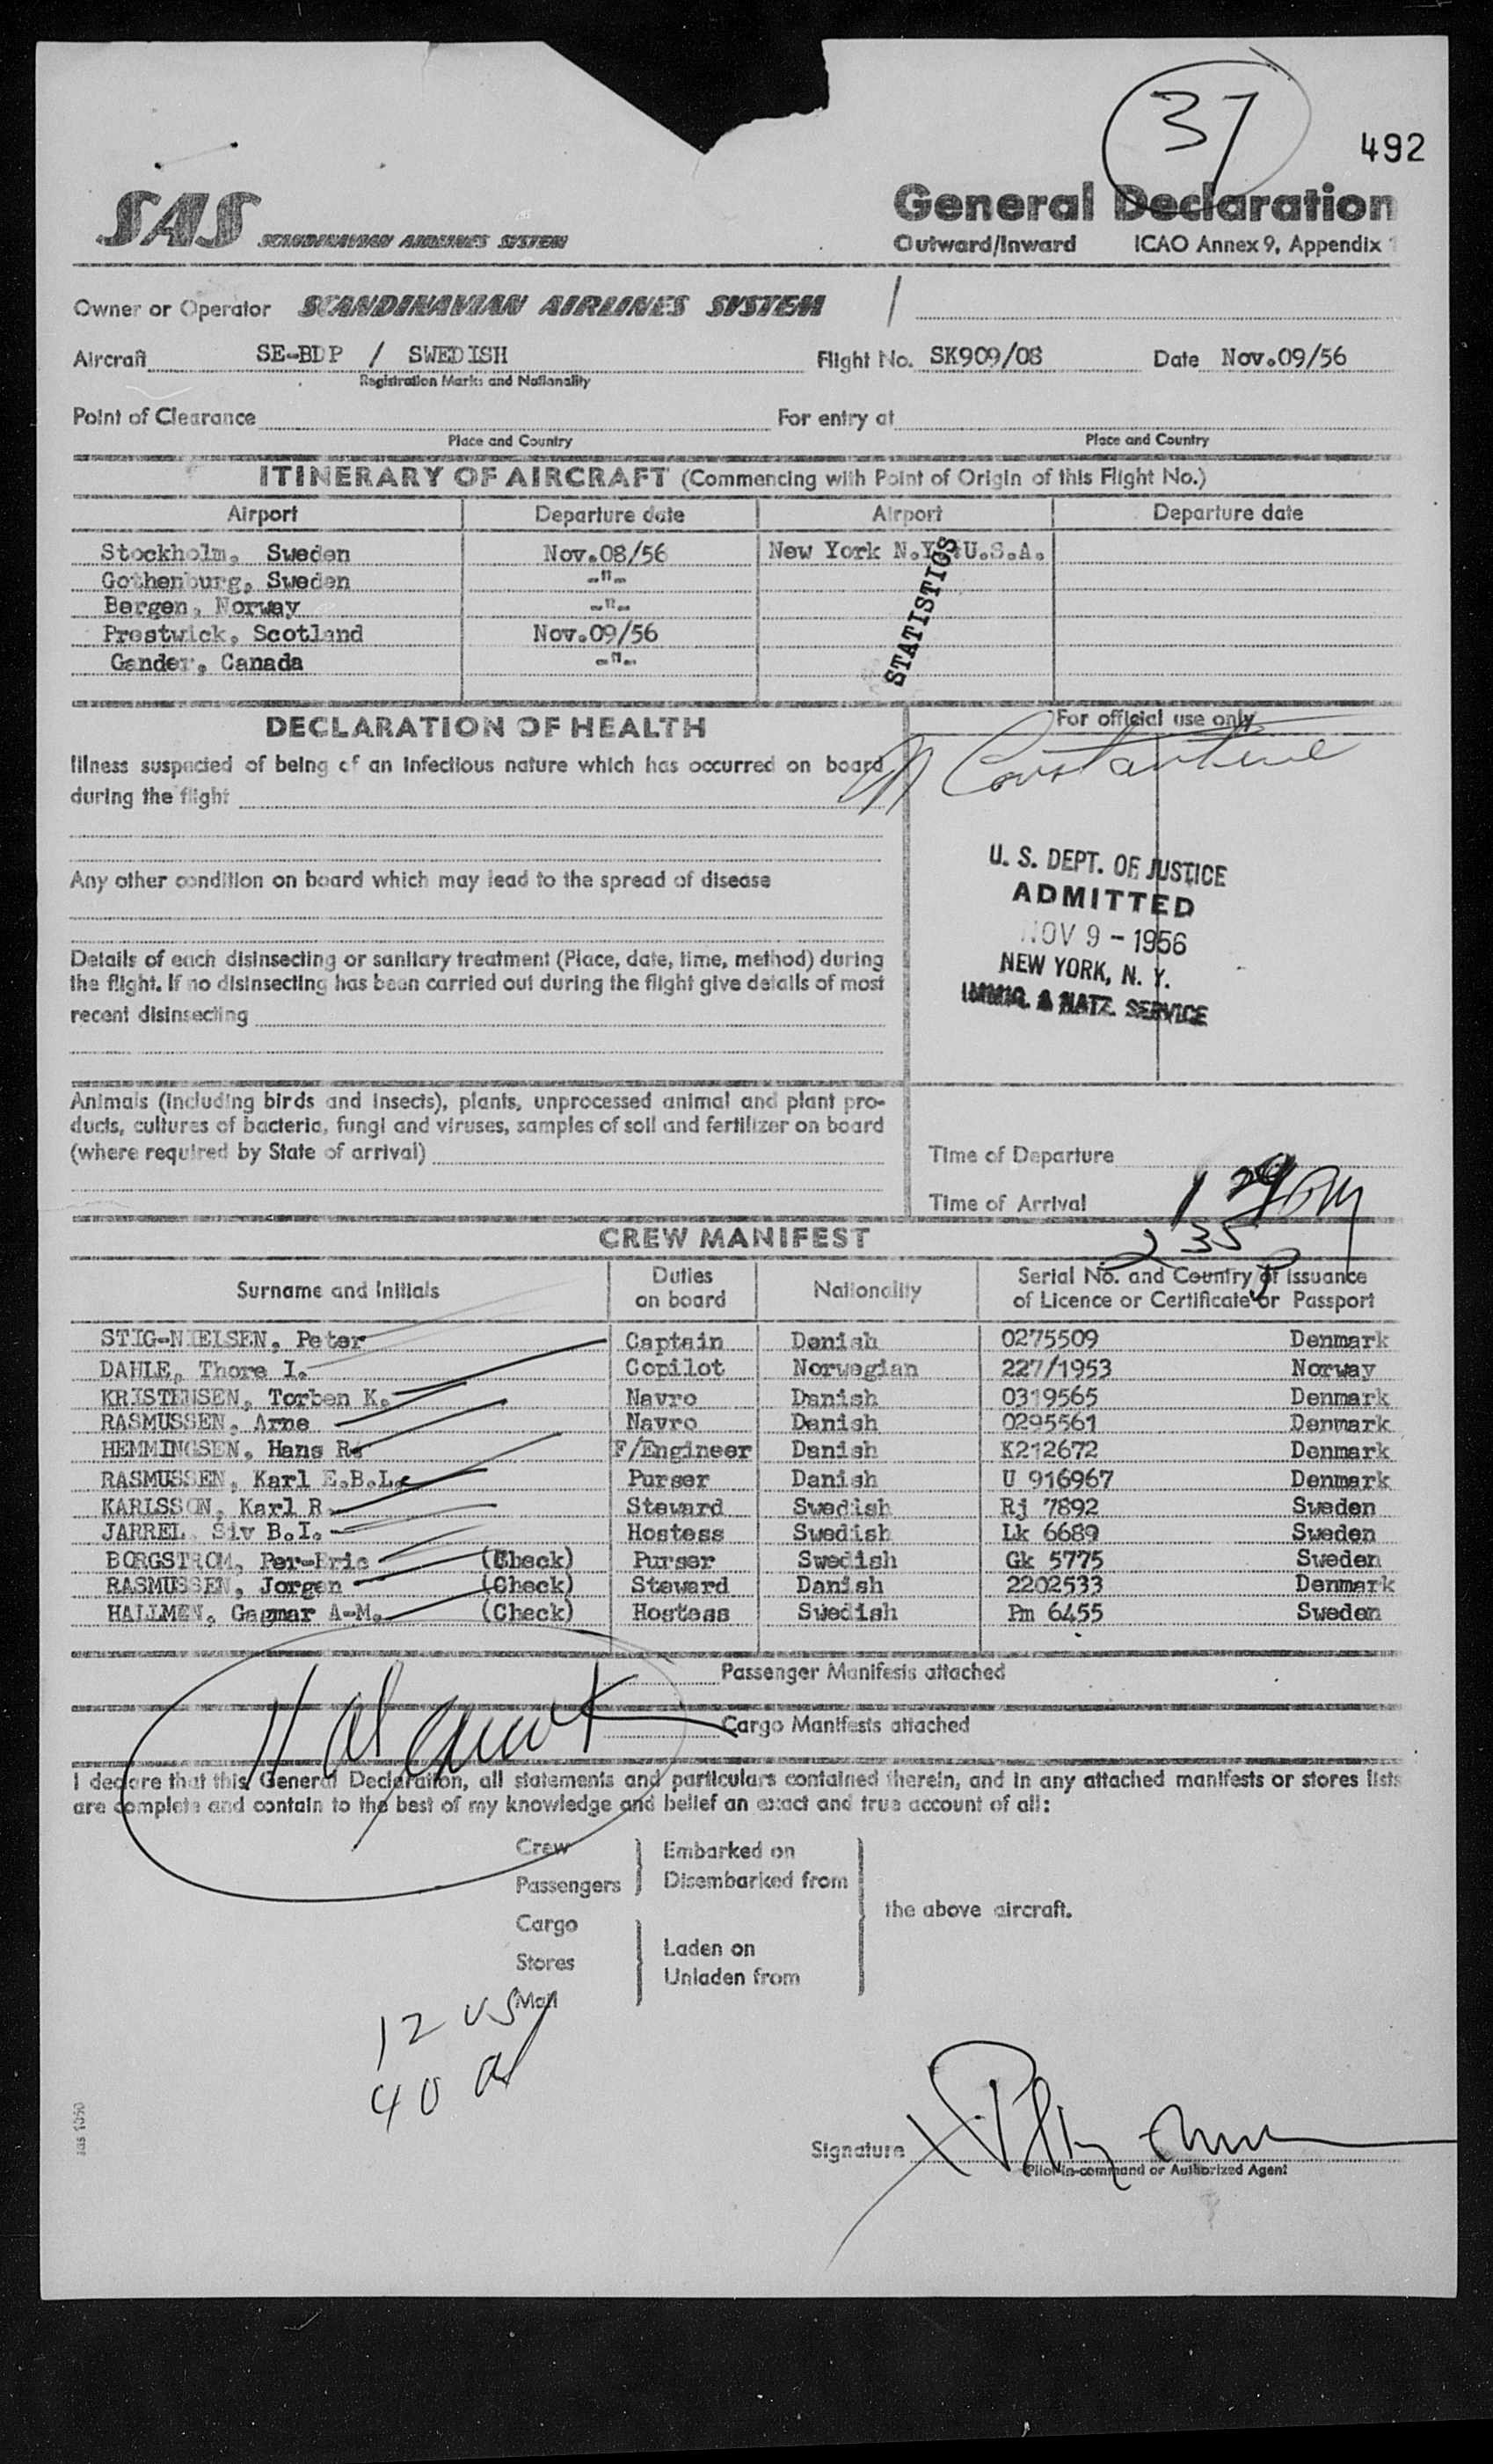 37
492
SAS SCANDINAVIAN AIRLINES SYSTEM
General Declaration
Outward/Inward ICAO Annex 9, Appendix 1
Owner or Operator SCANDINAVIAN AIRLINES SYSTEM
Aircraft SE-BDP / SWEDISH Flight No. SK909/08 Date Nov.09/56
Registration Marks and Nationality
Point of Clearance For entry at
Place and Country Place and Country
ITINERARY OF AIRCRAFT (Commencing with Point of Origin of this Flight No.)
Airport Departure date Airport Departure date
Stockholm, Sweden Nov.08/56 New York N.Y. U.S.A.
Gothenburg, Sweden -"-
Bergen, Norway -"-
Prestwick, Scotland Nov.09/56
Gander, Canada -"-
STATISTICS
DECLARATION OF HEALTH
For official use only
Illness suspected of being of an infectious nature which has occurred on board
during the flight
Constantine
Any other condition on board which may lead to the spread of disease
U. S. DEPT. OF JUSTICE
ADMITTED
NOV 9 - 1956
NEW YORK, N. Y.
IMMIG. & NATZ. SERVICE
Details of each disinsecting or sanitary treatment (Place, date, time, method) during
the flight. If no disinsecting has been carried out during the flight give details of most
recent disinsecting
Animals (including birds and insects), plants, unprocessed animal and plant pro-
ducts, cultures of bacteria, fungi and viruses, samples of soil and fertilizer on board
(where required by State of arrival)
Time of Departure
Time of Arrival
2 35 P
CREW MANIFEST
Surname and Initials Duties on board Nationality Serial No. and Country of Issuance of Licence or Certificate or Passport
STIG-NIELSEN, Peter Captain Danish 0275509 Denmark
DAHLE, Thore I. Copilot Norwegian 227/1953 Norway
KRISTENSEN, Torben K. Navro Danish 0319565 Denmark
RASMUSSEN, Arne Navro Danish 0295561 Denmark
HEMMINGSEN, Hans R. F/Engineer Danish K212672 Denmark
RASMUSSEN, Karl E.B.L. Purser Danish U 916967 Denmark
KARLSSON, Karl R. Steward Swedish Rj 7892 Sweden
JARREL Siv B.I. Hostess Swedish Lk 6689 Sweden
BORGSTROM, Per-Eric (Check) Purser Swedish Gk 5775 Sweden
RASMUSSEN, Jorgen (Check) Steward Danish 2202533 Denmark
HALLMEN, Gagmar A-M. (Check) Hostess Swedish Pm 6455 Sweden
Passenger Manifests attached
Cargo Manifests attached
I declare that this General Declaration, all statements and particulars contained therein, and in any attached manifests or stores lists
are complete and contain to the best of my knowledge and belief an exact and true account of all:
Crew Embarked on
Passengers Disembarked from
the above aircraft.
Cargo
Stores Laden on
Mail Unladen from
12 US
40 al
sas 1050
Signature
Pilot-in-command or Authorized Agent